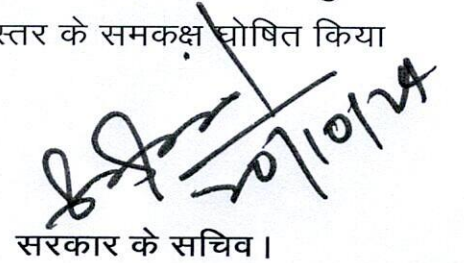 स्तर के समकक्ष घोषित किया
20/10/24
सरकार के सचिव।